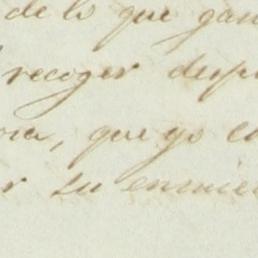 de lo que gan
recoger desp
ora, que yo co
r su enmien